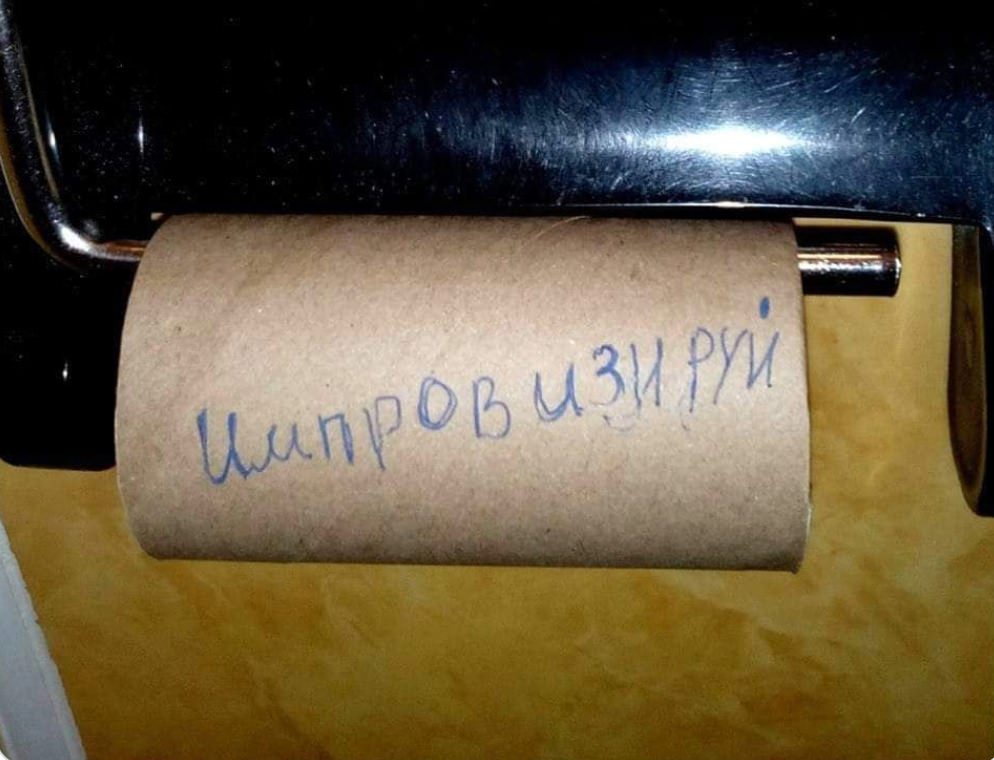 Импровизируй